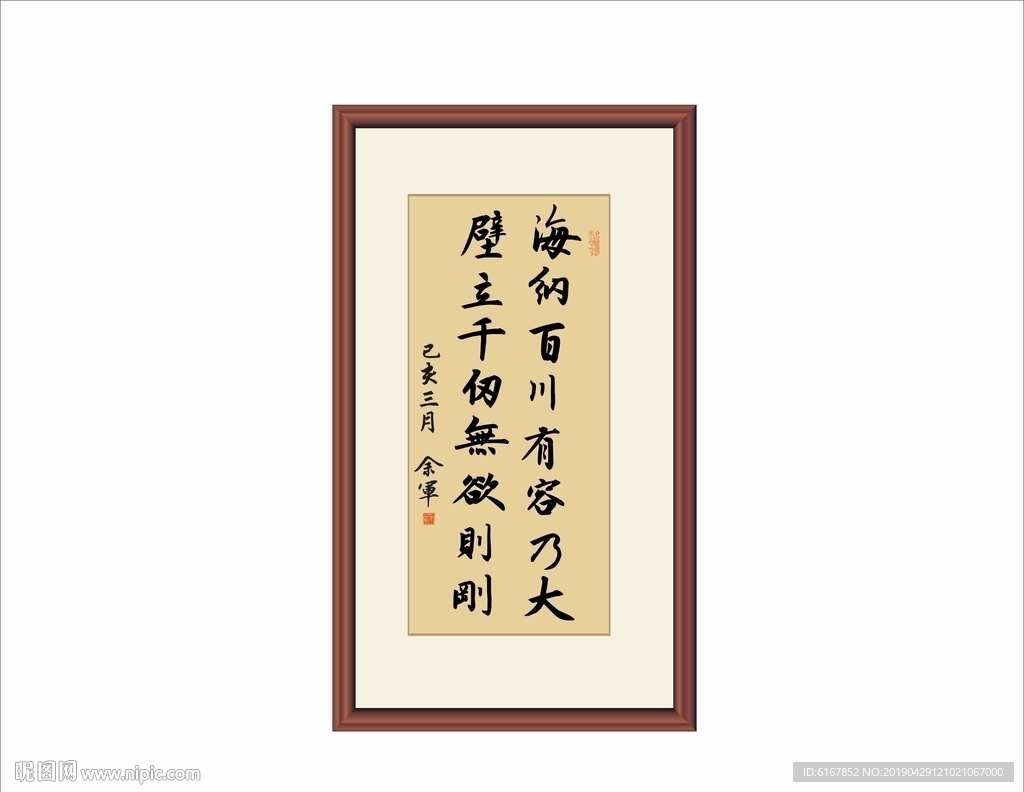 海納百川有容乃大
壁立千仞無欲則剛
己亥三月 余軍
昵图网 www.nipic.com
ID:6167852 NO:20190429121021067000